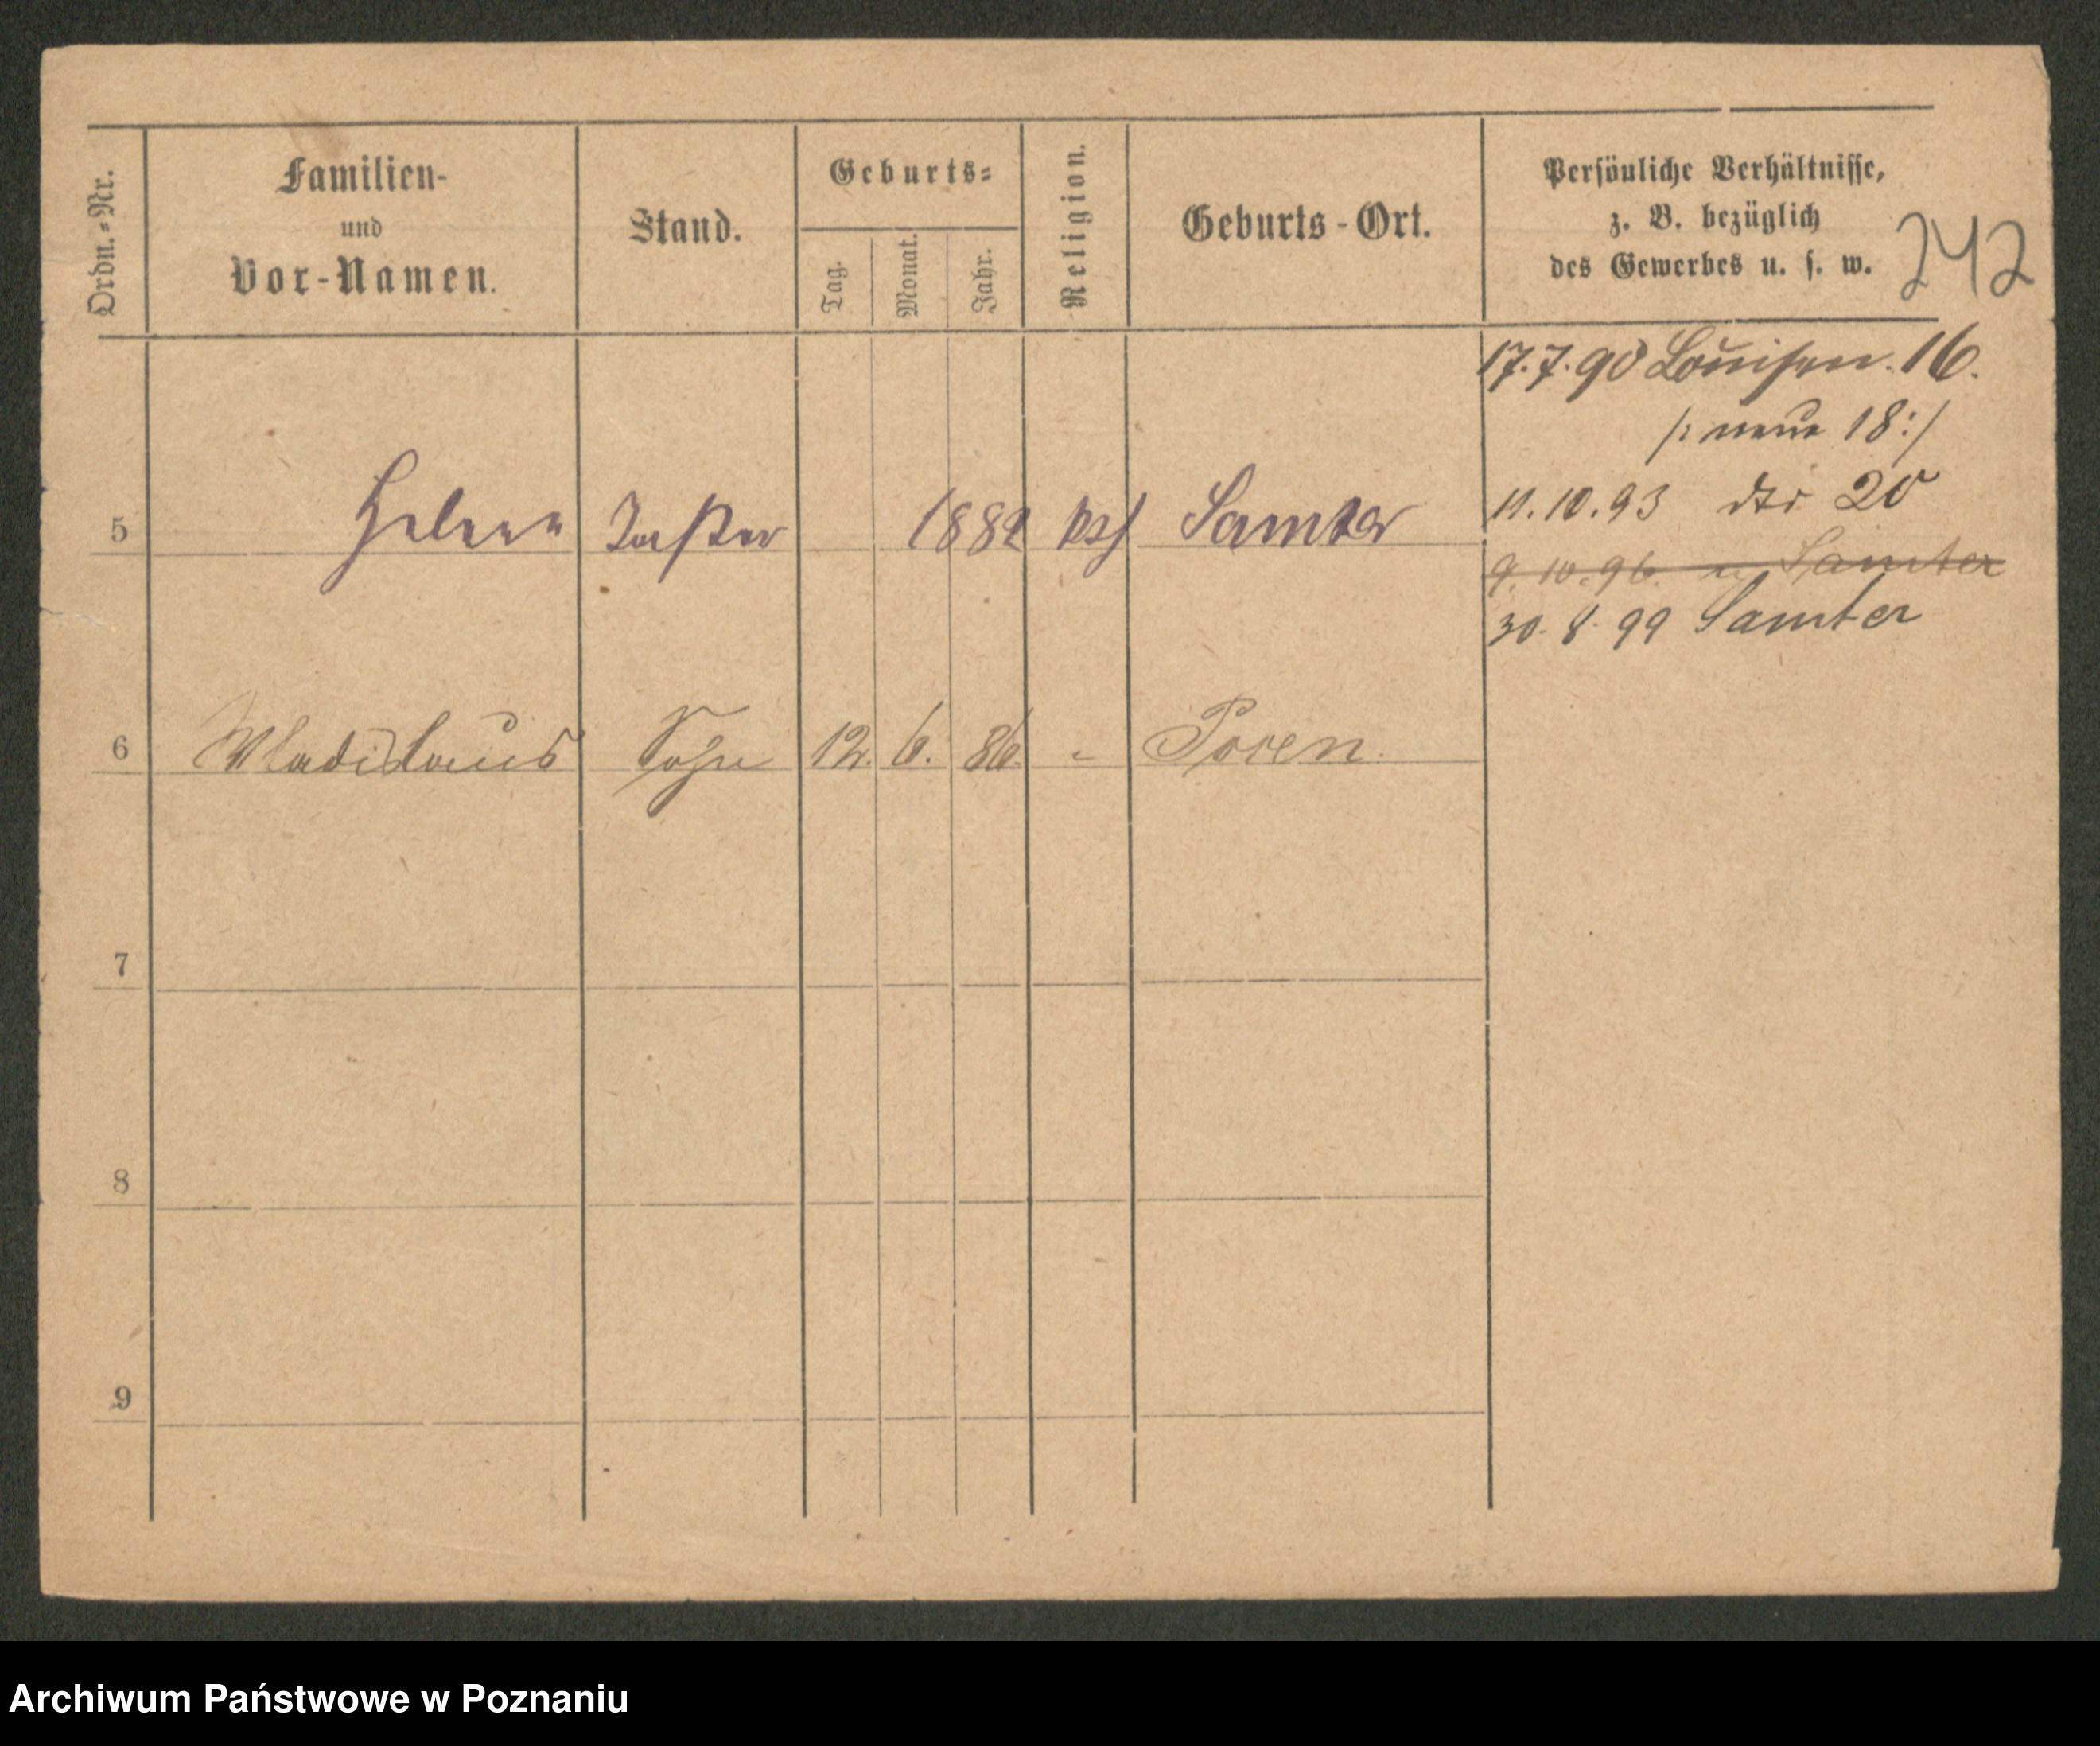 Ordn.-Nr.
Familien-
und
Vor-Namen.
Stand.
Geburts-
Tag.
Monat.
Jahr.
Religion.
Geburts-Ort.
Persönliche Verhältnisse,
z. B. bezüglich
des Gewerbes u. s. w.
242
17.7.90 Louisen. 16.
/: neue 18 :/
5 Helene 1882 Samter
11.10.93 dto 20
9.10.96. n. Samter
30.8.99 Samter
6 Wladislaus Sohn 12. 6. 86. " Posen.
7
8
9
Archiwum Państwowe w Poznaniu